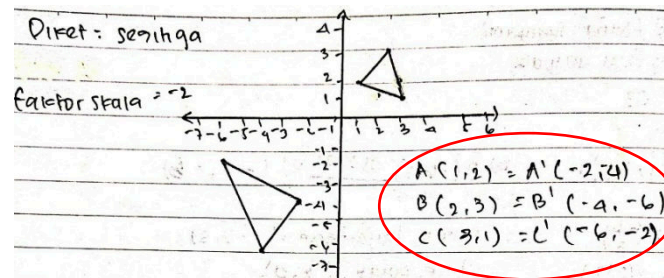 Diket : segihga
faktor skala = -2
4
3
2
1
-7 -6 -5 -4 -3 -2 -1 1 2 3 4 5 6
-1
-2
-3
-4
-5
-6
-7
A (1,2) = A' (-2,-4)
B (2,3) = B' (-4,-6)
C (3,1) = C' (-6,-2)